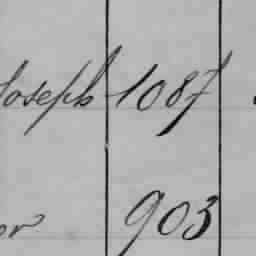 Joseph 1087
or 903